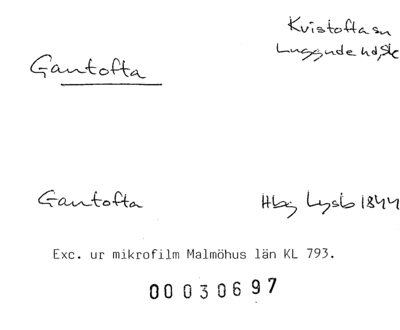 Kvistofta sn
Luggude hd, Sk
Gantofta
Gantofta
Hbg Lyslb 1844
Exc. ur mikrofilm Malmöhus län KL 793.
00030697